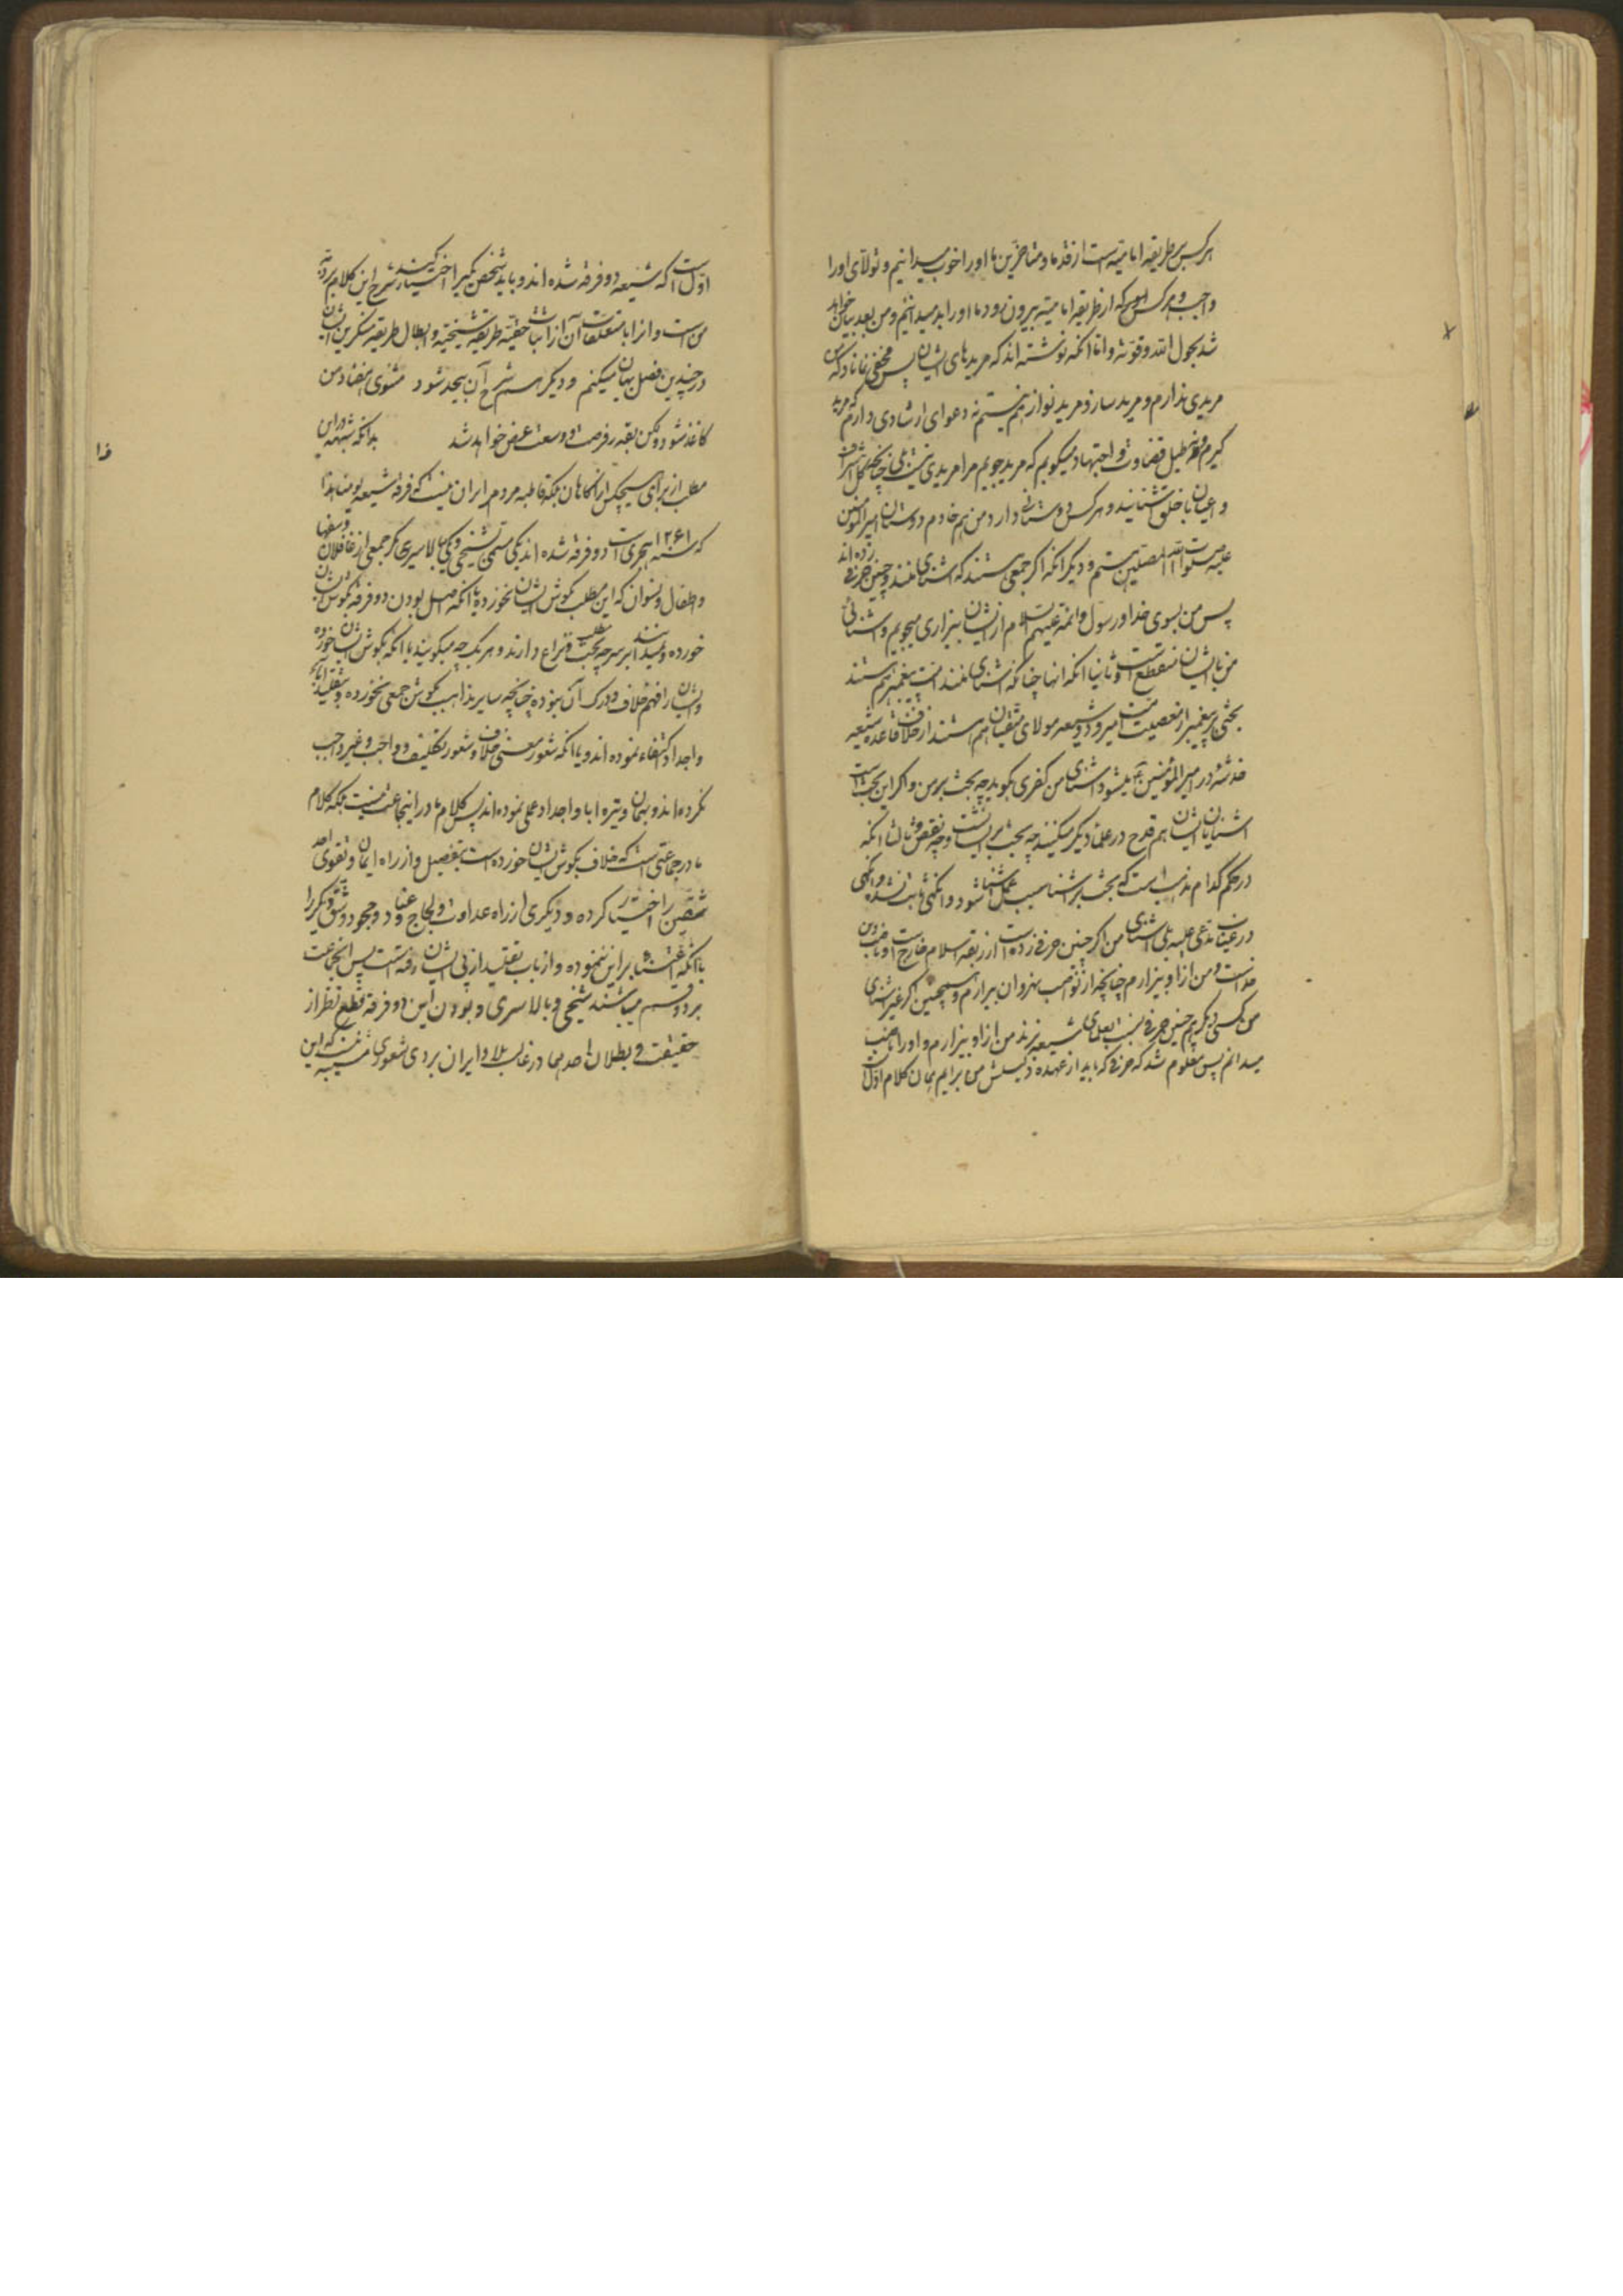 هرکس بر طریقه امامیه است از قدما و متاخرین ما او را خوب میدانیم و تولای او را
واجب و هر کس که از طریقه امامیه بیرون رود ما او را بد میدانیم و من بعد بیان خواهد
شد بحول الله و قوته و اما آنکه نوشته اند که مریدهای ایشان پس مخفی نماناد که من
مریدی ندارم و مرید ساز و مرید نواز هم نیستم نه دعوای ارشادی دارم که مرید
گیرم و نه طبل قضاوت و اجتهاد میکوبم که مرید جویم مرا مریدی نیست بلی چنانچه کل اشراف
و اعیان با خلق آشنایند و هر کس دوستانی دارد من هم خادم دوستان امیرالمؤمنین
علیه صلوات المصلین هستم و دیگر آنکه اگر جمعی هستند که آشنای منند و چنین حرفی زده اند
پس من بسوی خدا و رسول و ائمه علیهم السلام از ایشان بیزاری میجویم و آشنائی
من با ایشان منقطع است و ثانیا آنکه آنها چنانکه آشنای منند امت پیغمبر هم هستند
بحثی بر پیغمبر از معصیت امت نمیرود و شیعه مولای متقیان هم هستند از خلاف قاعده شیعه
خدشه در امیرالمؤمنین ع نمیشود آشنای من کفری بگوید چه بحث بر من و اگر این بحث است
آشنایان ایشان هم قدح در علماء دیگر میکنند چه بحث بر ایشانست و چه نقص و ثالثا آنکه
در حکم کدام مذهب است که بحث بر آشنا بسبب عمل آشنا شود و آنگهی ثابت نشده و آنگهی
در غیاب مدعی علیه بلی آشنای من اگر چنین حرفی زده است از ربقه اسلام خارج است و ناصب دین
خداست و من از او بیزارم چنانچه از نواصب نهروان بیزارم و همچنین اگر غیر آشنای
من کسی دیگر هم چنین حرفی نسبت بعلمای شیعه بزند من از او بیزارم و او را ناصب
میدانم پس معلوم شد که حرفی که باید از عهده دلیلش من برایم همان کلام اول است
اول است که شیعه دو فرقه شده اند و باید شخص یکی را اختیار کند شرح این کلام بر ذمه
من است و آنرا با متعلقات آن از اثبات حقیة طریقه شیخیه و ابطال طریقه منکرین ایشان
در چندین فصل بیان میکنم و دیگر شرح آن بیحد شود مثنوی هفتاد من
کاغذ شود ولکن بقدر فرصت و وسعت عرض خواهد شد بدانکه شبهه در این
مطلب از برای هیچیک از آگاهان بلکه قاطبه مردم ایران نیست که فرقه شیعه یومنا هذا
که سنه ۱۲۶۱ هجری است دو فرقه شده اند یکی مسمی بشیخی و یکی ببالاسری مگر جمعی از غافلان و سفها
و اطفال و نسوان که این مطلب بگوش ایشان نخورده یا آنکه اصل بودن دو فرقه بگوش ایشان
خورده و نمیدانند بر سر چه مطلب بحث و نزاع دارند و هر یک چه میگویند یا آنکه بگوش ایشان خورده
و ایشان را فهم خلاف و درک آن نبوده چنانچه سایر مذاهب بگوش جمعی نخورده و بتقلید آباء
و اجداد اکتفاء نموده اند و یا آنکه شعور معنی خلاف و شعور تکلیف و واجب و غیر واجب
نکرده اند و بهمان وتیره ابا و اجداد عمل نموده اند پس کلام ما در اینجماعت نیست بلکه کلام
ما در جماعتی است که خلاف بگوش ایشان خورده است بتفصیل و از راه ایمان و تقوی احد
شقین را اختیار کرده و دیگری از راه عداوت و لجاج و عناد و جحود شق دیگر را
یا آنکه اعتنا بر این ننموده و از باب تقلید از پی ایشان رفته است پس اینجماعت
بر دو قسم میباشند شیخی و بالاسری و بودن این دو فرقه قطع نظر از
حقیقت و بطلان احدیهما در غالب بلاد ایران بر ذی شعوری نیست که این